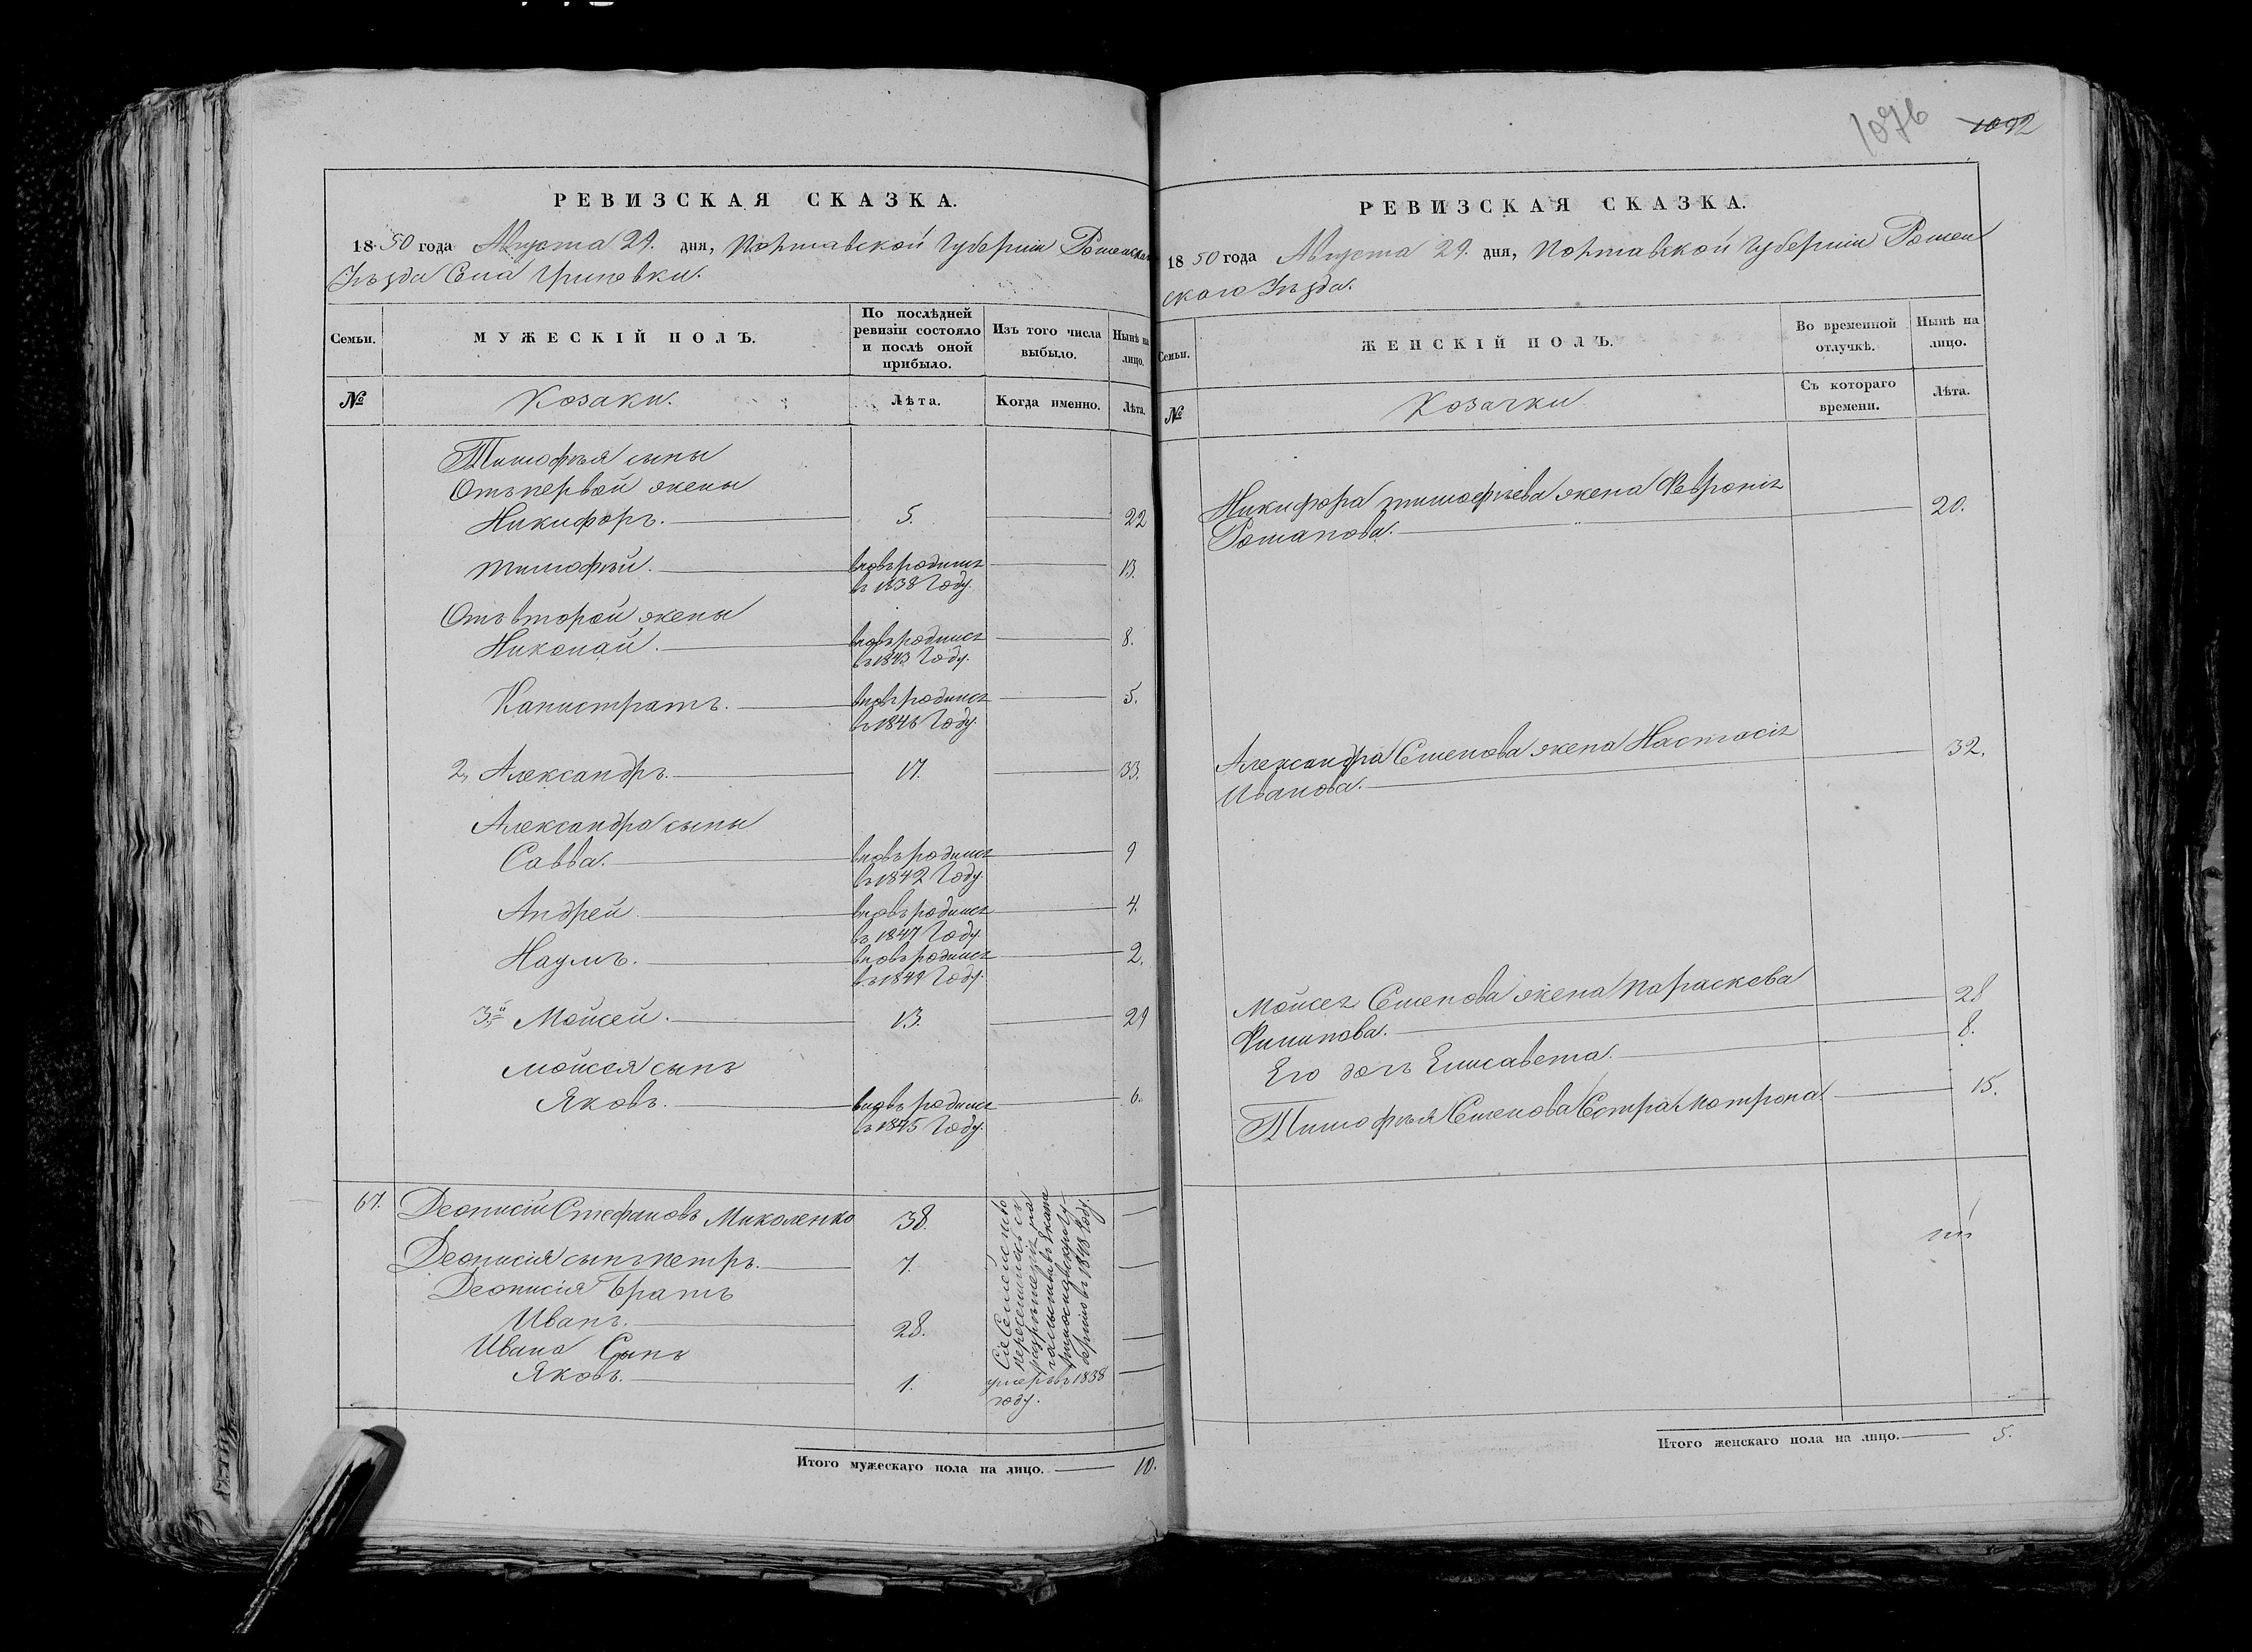 1076 1092
РЕВИЗСКАЯ СКАЗКА.
1850 года Августа 29. дня, Полтавской Губернии Роменскаго
Уѣзда Села Гриповки.
Семьи. МУЖЕСКІЙ ПОЛЪ. По послѣдней ревизіи состояло и послѣ оной прибыло. Изъ того числа выбыло. Нынѣ на лицо.
№ Козаки. Лѣта. Когда именно. Лѣта.
Тимофѣя сыны
Отъ первой жены
Никифоръ. 5. 22
Тимофѣй. вновь родился 13.
въ 1838 Году.
Отъ второй жены
Николай. вновь родился 8.
въ 1843 Году.
Калистратъ. вновь родился 5.
въ 1846 Году.
2, Александръ. 17. 33.
Александра сыны
Савва. вновь родился 9
въ 1842 Году.
Андрей вновь родился 4.
въ 1847 Году
Наумъ. вновь родился 2.
въ 1849 Году.
3й Мойсей. 13. 29
Мойсея сынъ
Яковъ. вновь родился 6.
въ 1845 Году.
67. Деонисій Стефановъ Миколенко 38.
Деонисія сынъ Петръ. 7.
Деонисія братъ
Иванъ. 28.
Ивана Сынъ
Яковъ. 1. умеръ въ 1838
году.
Сіе Семейство
переселилось съ
въ 1848 Году.
Итого мужескаго пола на лицо. 10.
РЕВИЗСКАЯ СКАЗКА.
1850 года Августа 29. дня, Полтавской Губерніи Ромен
скаго Уѣзда.
Семьи. ЖЕНСКІЙ ПОЛЪ. Во временной отлучкѣ. Нынѣ на лицо.
№ Козачки Съ котораго времени. Лѣта.
Никифора Тимофѣева жена Февронія
Романова. 20.
Александра Степова жена Настасія
Иванова. 32.
Мойсея Степова жена Параскева
Филипова. 28
Его дочь Елисавета. 8.
Тимофѣя Степова Сестра Мотрона 15.
Итого женскаго пола на лицо. 5.